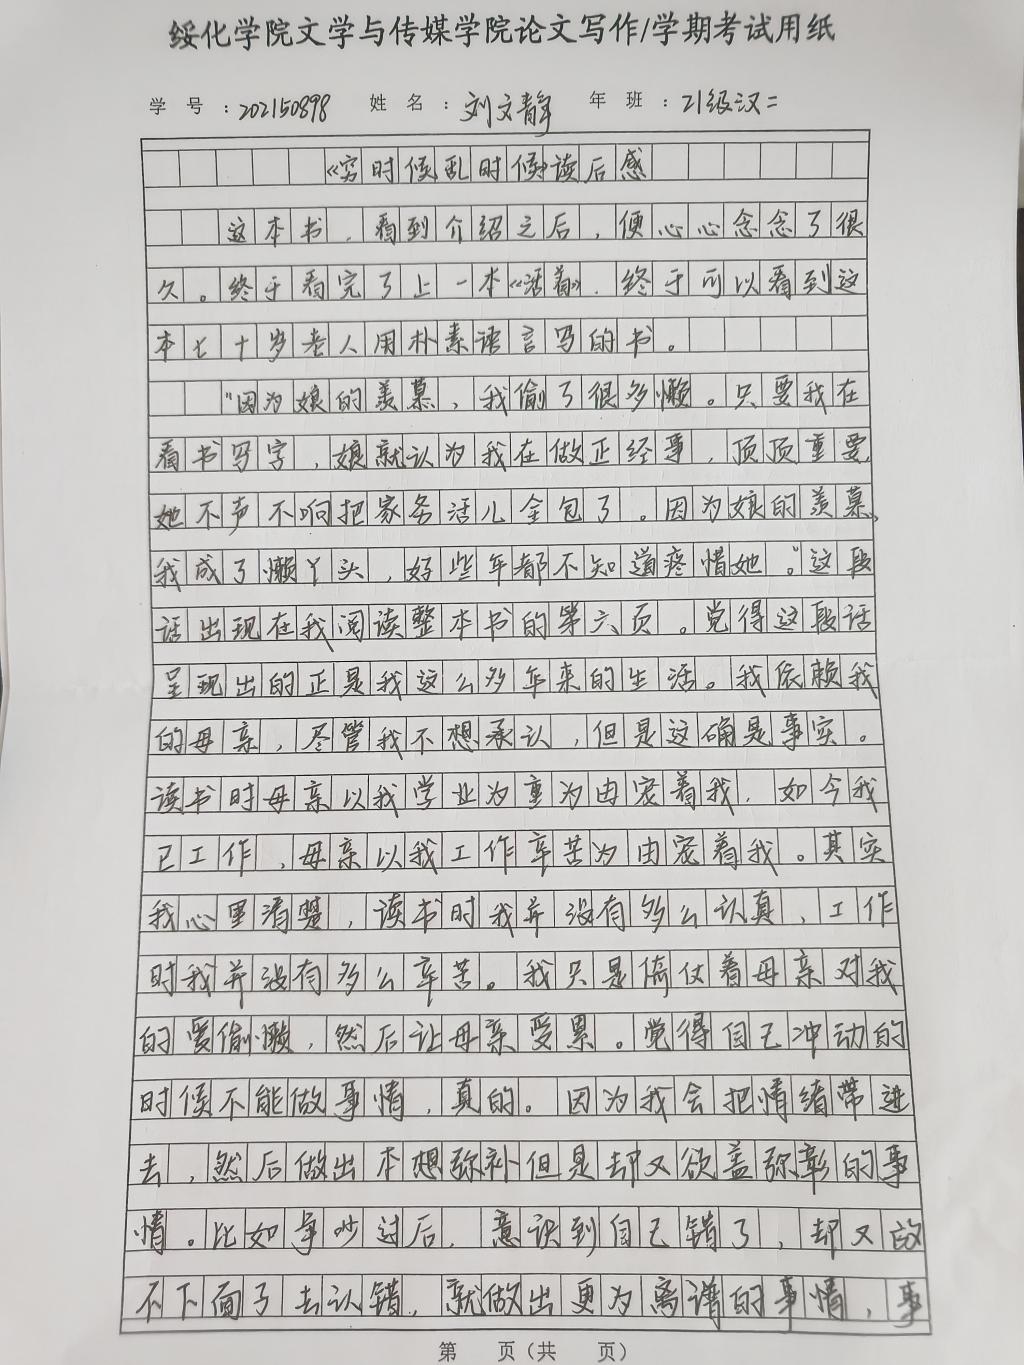 绥化学院文学与传媒学院论文写作/学期考试用纸
学 号 ：202150898 姓 名 ：刘文静 年 班 ：21级汉二
《穷时候乱时候》读后感
这本书，看到介绍之后，便心心念念了很
久。终于看完了上一本《活着》，终于可以看到这
本七十岁老人用朴素语言写的书。
“因为娘的羡慕，我偷了很多懒。只要我在
看书写字，娘就认为我在做正经事，顶顶重要，
她不声不响把家务活儿全包了。因为娘的羡慕，
我成了懒丫头，好些年都不知道疼惜她。”这段
话出现在我阅读整本书的第六页。觉得这段话
呈现出的正是我这么多年来的生活。我依赖我
的母亲，尽管我不想承认，但是这确是事实。
读书时母亲以我学业为重为由宠着我，如今我
已工作，母亲以我工作辛苦为由宠着我。其实
我心里清楚，读书时我并没有多么认真，工作
时我并没有多么辛苦。我只是倚仗着母亲对我
的爱偷懒，然后让母亲受累。觉得自己冲动的
时候不能做事情，真的。因为我会把情绪带进
去，然后做出本想弥补但是却又欲盖弥彰的事
情。比如争吵过后，意识到自己错了，却又放
不下面子去认错，就做出更为离谱的事情，事
第 页（共 页）